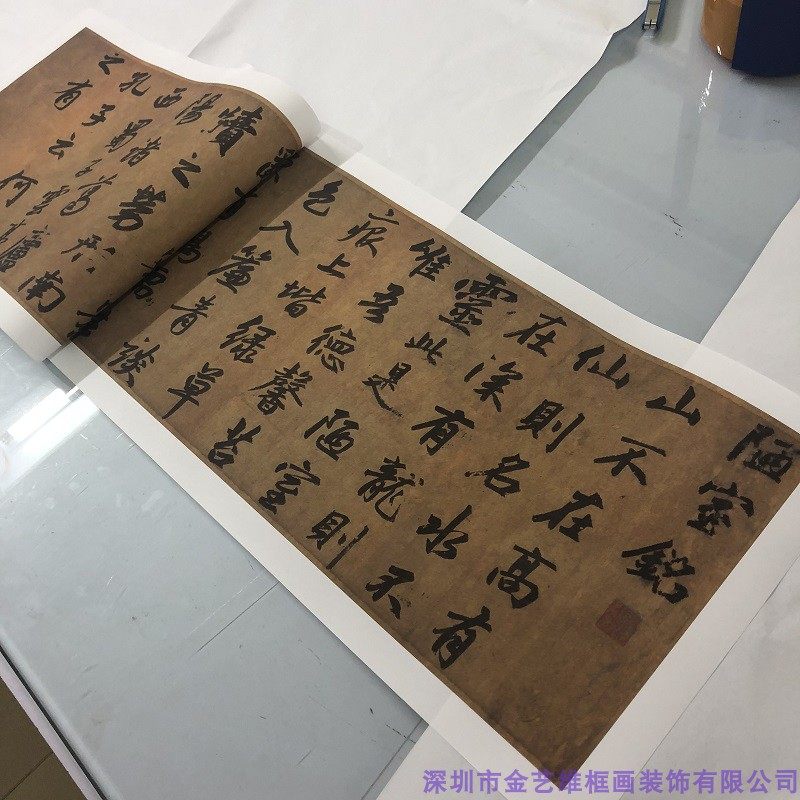 陋室銘
山不在高有
仙則名水不
在深有龍則
靈此是陋室
惟吾德馨苔
痕上堦綠草
色入簾青談
牘之勞形南
陽諸葛廬
西蜀子雲
孔子云何
之有
深圳市金艺维框画装饰有限公司